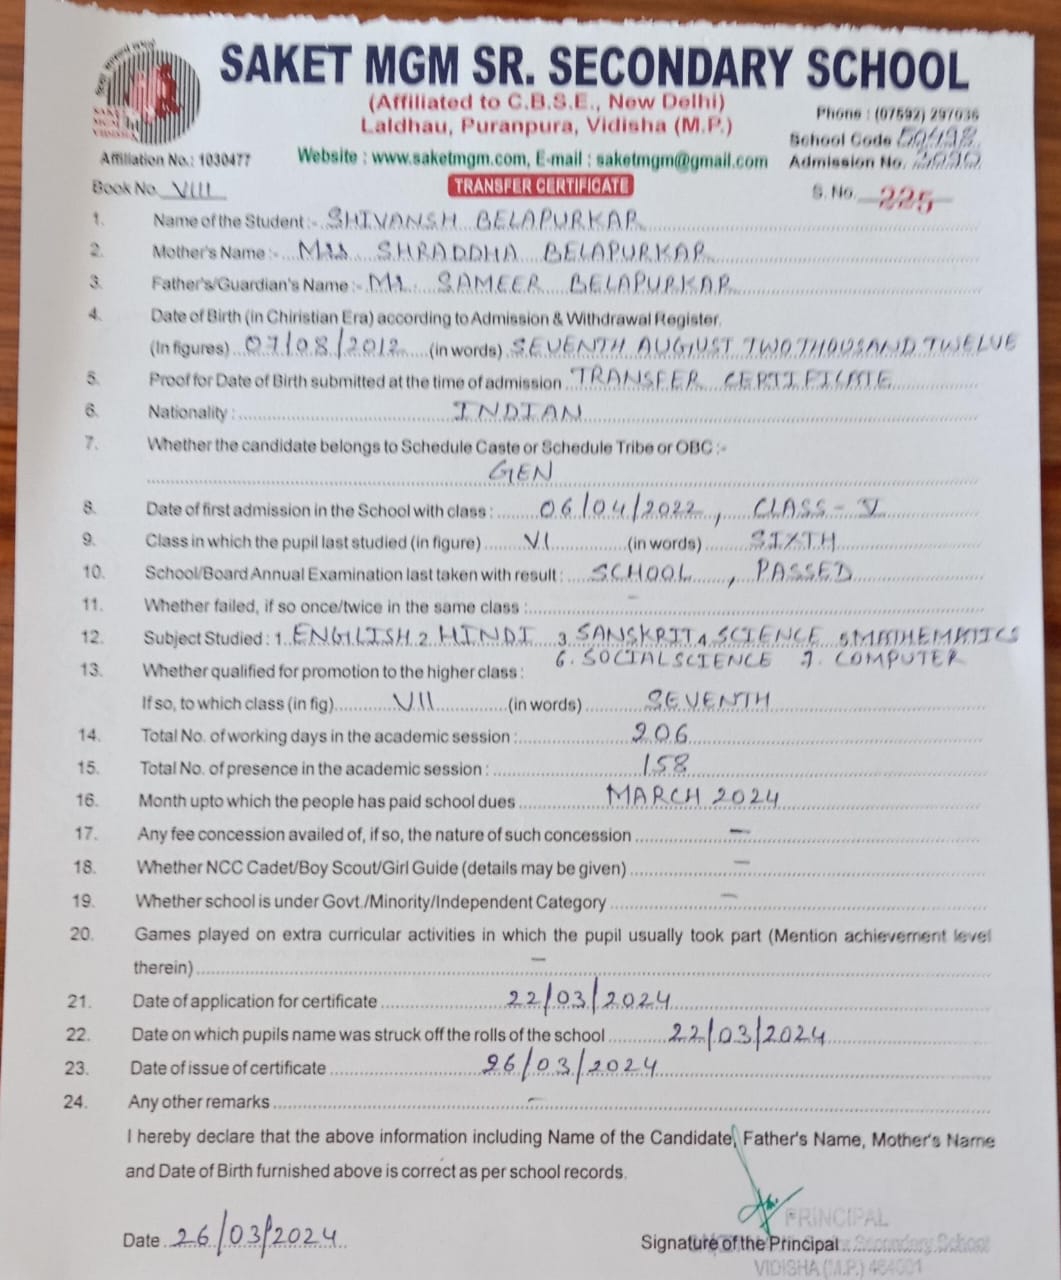 SAKET MGM SR. SECONDARY SCHOOL
(Affiliated to C.B.S.E., New Delhi)
Laldhau, Puranpura, Vidisha (M.P.)
Phone : (07592) 297036
School Code 50498
Affiliation No.: 1030477 Website : www.saketmgm.com, E-mail : saketmgm@gmail.com Admission No.
Book No. VIII TRANSFER CERTIFICATE S. No. 225
1. Name of the Student :- SHIVANSH BELAPURKAR
2. Mother's Name :- Mrs SHRADDHA BELAPURKAR
3. Father's/Guardian's Name :- Mr. SAMEER BELAPURKAR
4. Date of Birth (in Chiristian Era) according to Admission & Withdrawal Register.
(In figures) 07/08/2012 (in words) SEVENTH AUGUST TWO THOUSAND TWELVE
5. Proof for Date of Birth submitted at the time of admission TRANSFER CERTIFICATE
6. Nationality : INDIAN
7. Whether the candidate belongs to Schedule Caste or Schedule Tribe or OBC :-
GEN
8. Date of first admission in the School with class : 06/04/2022, CLASS - V
9. Class in which the pupil last studied (in figure) VI (in words) SIXTH
10. School/Board Annual Examination last taken with result : SCHOOL, PASSED
11. Whether failed, if so once/twice in the same class : -
12. Subject Studied : 1. ENGLISH 2. HINDI 3. SANSKRIT 4. SCIENCE 5. MATHEMATICS
6. SOCIAL SCIENCE 7. COMPUTER
13. Whether qualified for promotion to the higher class :
If so, to which class (in fig) VII (in words) SEVENTH
14. Total No. of working days in the academic session : 206
15. Total No. of presence in the academic session : 158
16. Month upto which the people has paid school dues MARCH 2024
17. Any fee concession availed of, if so, the nature of such concession -
18. Whether NCC Cadet/Boy Scout/Girl Guide (details may be given) -
19. Whether school is under Govt./Minority/Independent Category -
20. Games played on extra curricular activities in which the pupil usually took part (Mention achievement level
therein) -
21. Date of application for certificate 22/03/2024
22. Date on which pupils name was struck off the rolls of the school 22/03/2024
23. Date of issue of certificate 26/03/2024
24. Any other remarks -
I hereby declare that the above information including Name of the Candidate, Father's Name, Mother's Name
and Date of Birth furnished above is correct as per school records.
PRINCIPAL
Date 26/03/2024 Signature of the Principal Secondary School
VIDISHA (M.P.) 464001